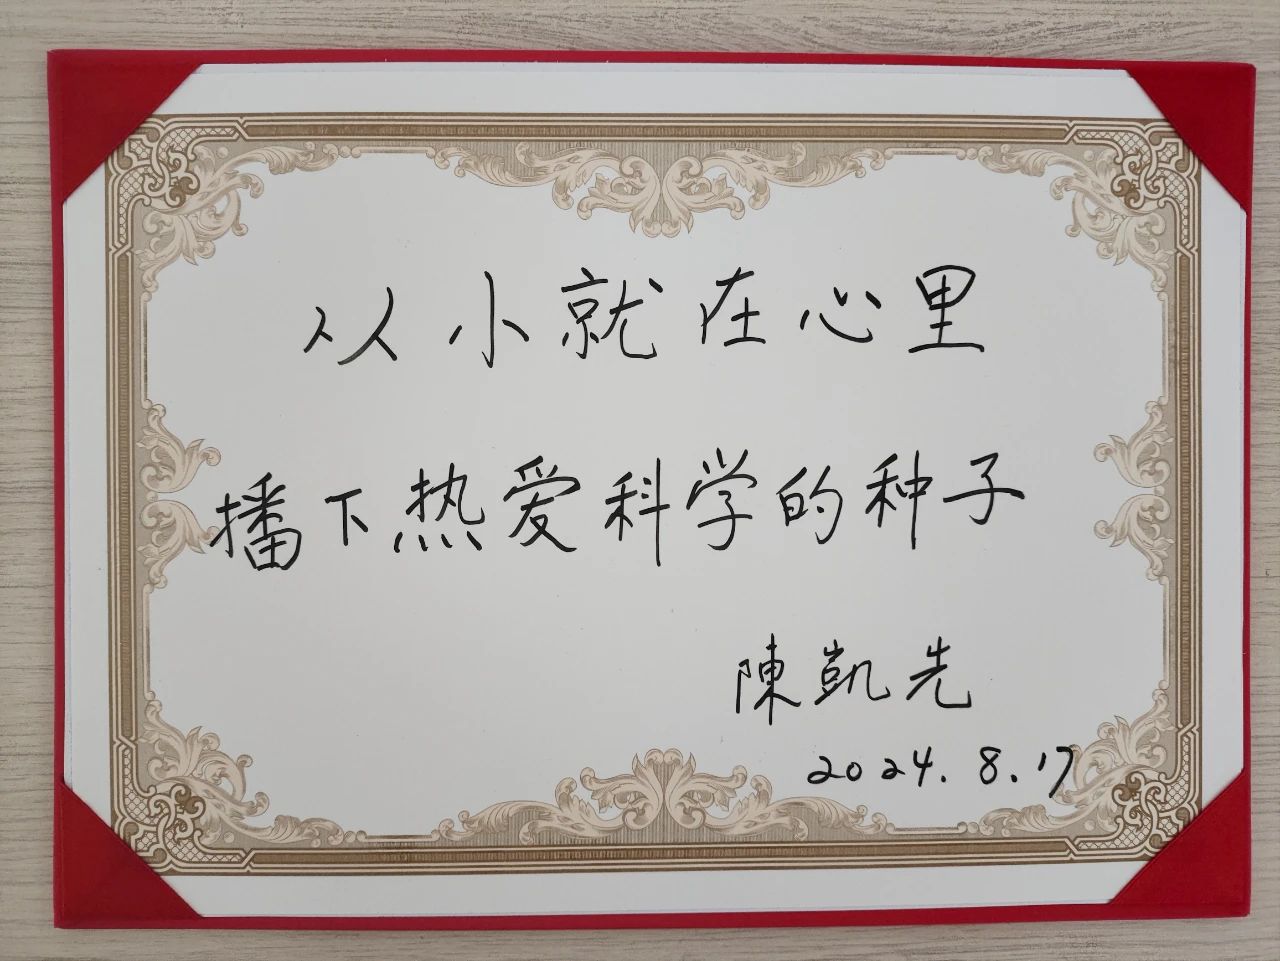 从小就在心里
播下热爱科学的种子
陳凱先
2024.8.17